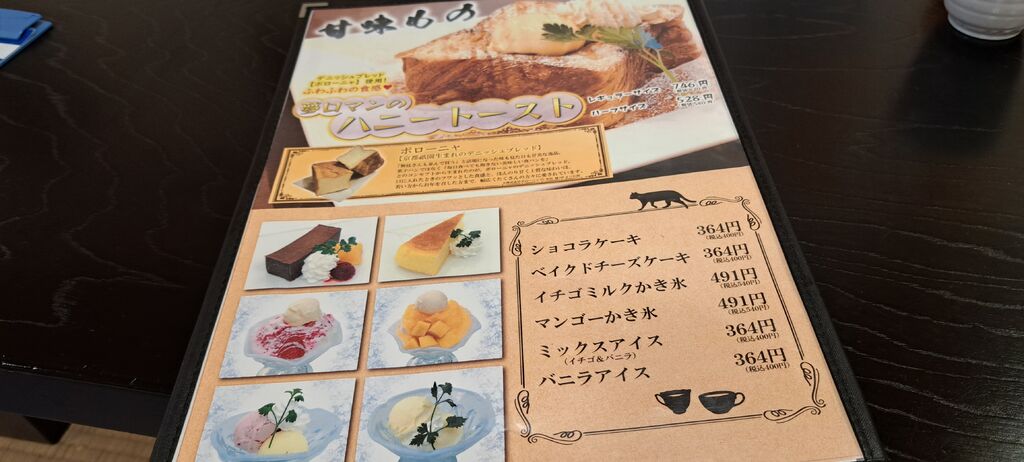 甘味もの
デニッシュブレッド
【ボローニャ】使用！
ふわふわの食感♥
夢ロマンの
ハニートースト
レギュラーサイズ 746円
ハーフサイズ 528円
ボローニャ
【京都祇園生まれのデニッシュブレッド】
ショコラケーキ 364円
(税込400円)
ベイクドチーズケーキ 364円
(税込400円)
イチゴミルクかき氷 491円
(税込540円)
マンゴーかき氷 491円
(税込540円)
ミックスアイス 364円
(イチゴ&バニラ) (税込400円)
バニラアイス 364円
(税込400円)